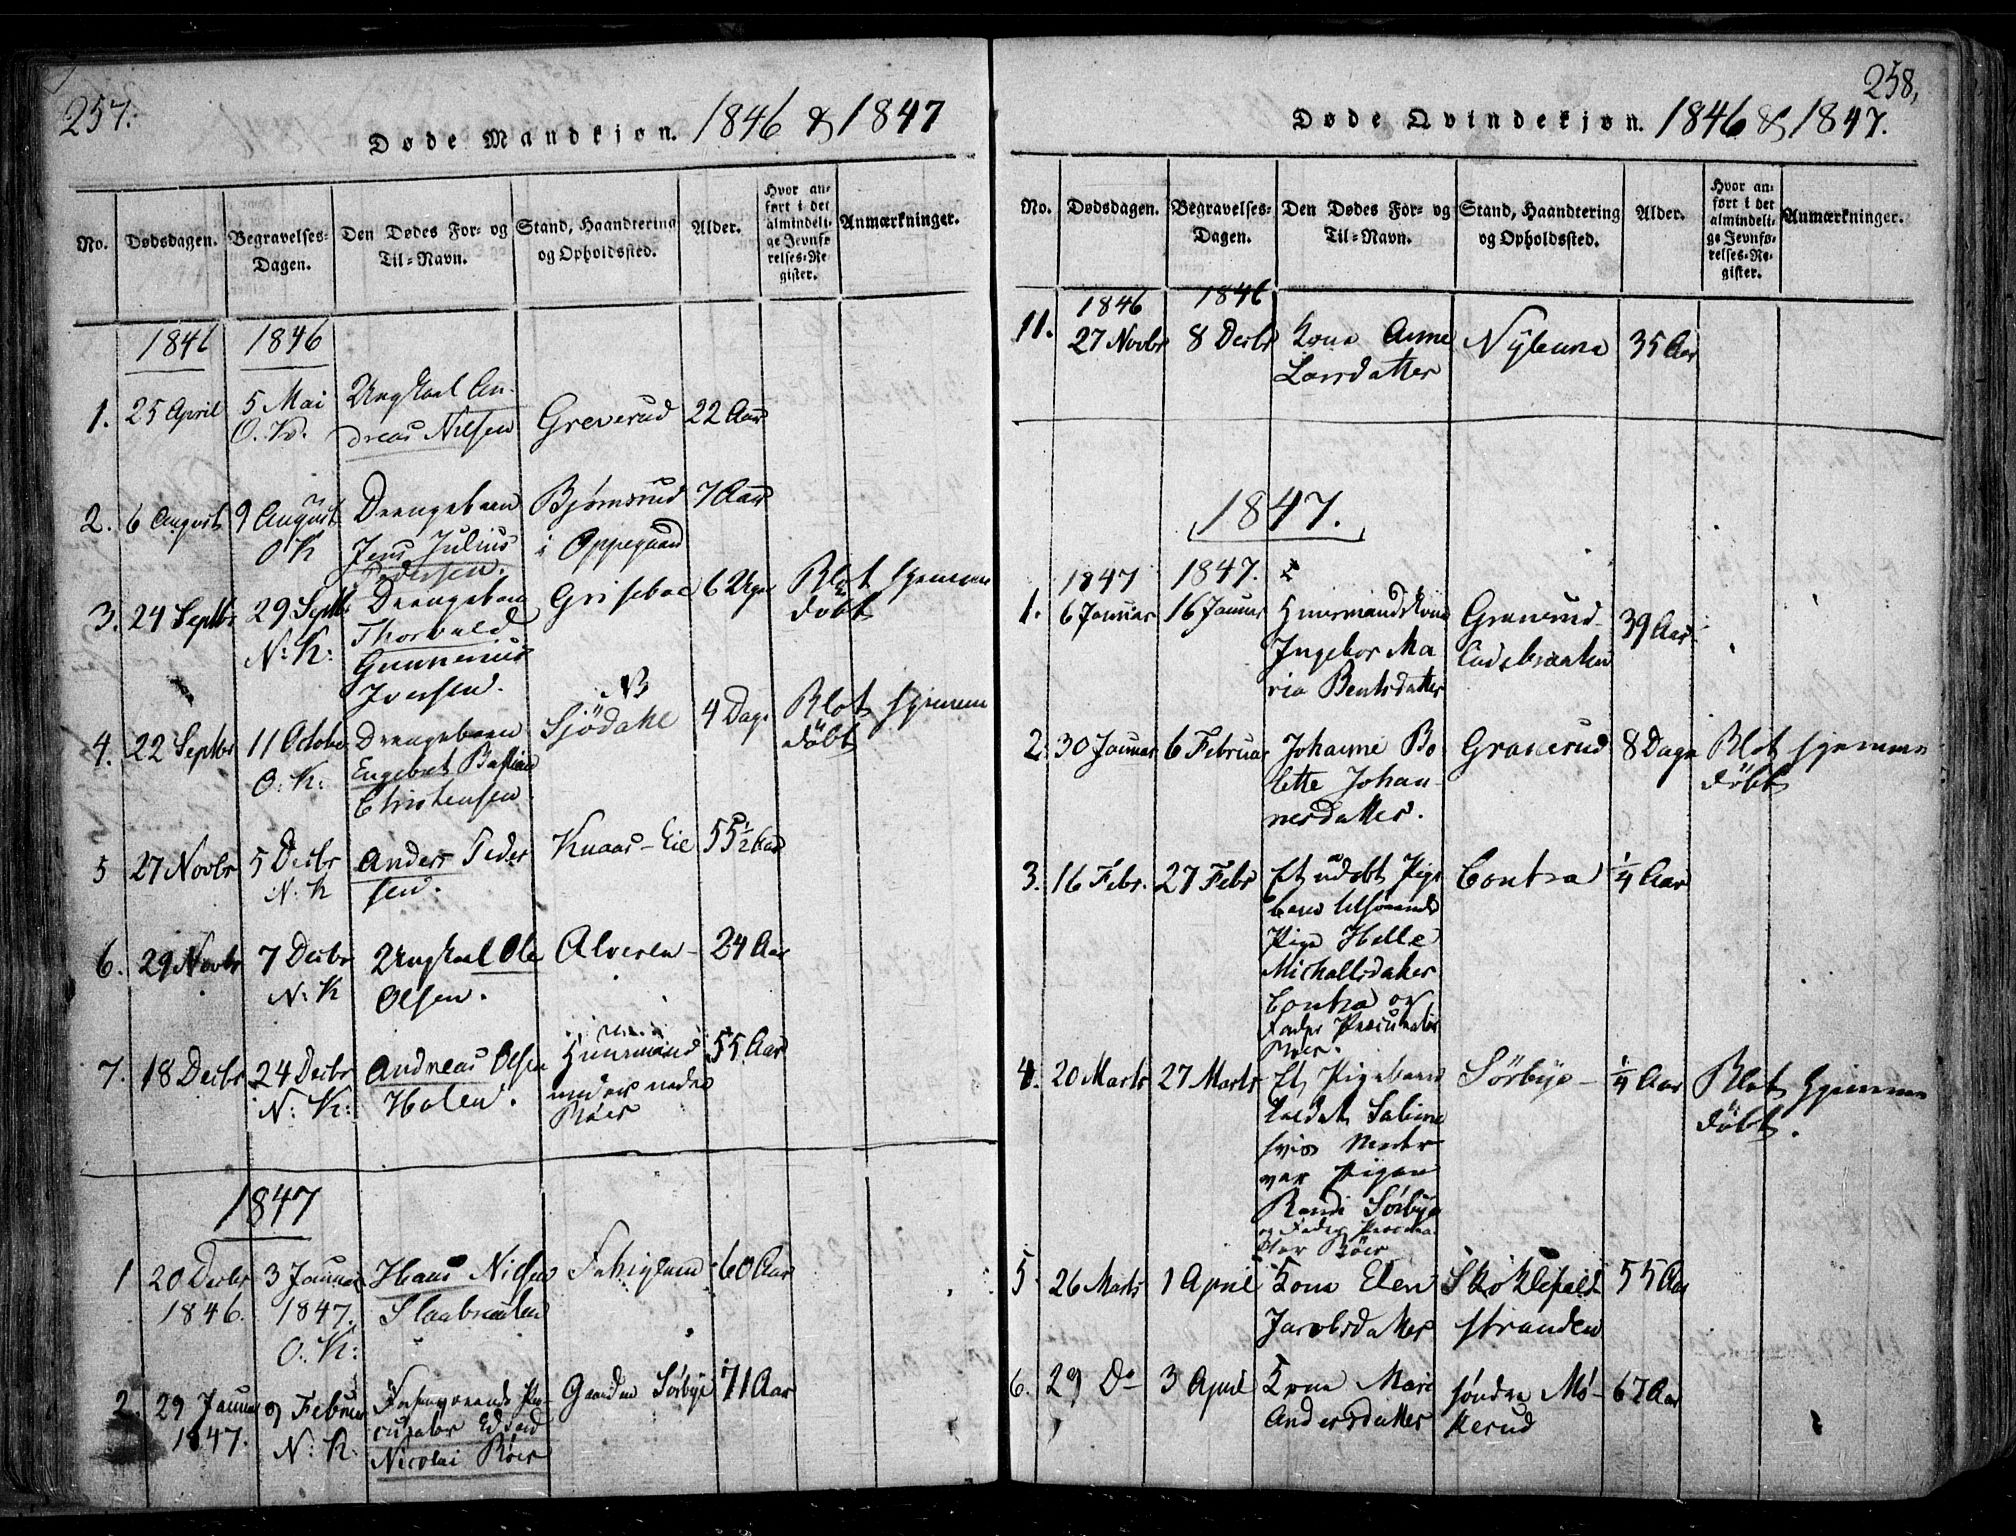 257.
Døde Mandkjøn. 1846 & 1847
No. Dødsdagen. Begravelses-Dagen. Den Dødes For- og Til-Navn. Stand, Haandtering og Opholdssted. Alder. Hvor anført i det almindelige Jevnførelses-Register. Anmærkninger.
1846 1846
1. 25 April 5 Mai Ungkarl An- Greverud 22 Aar
O. K. dreas Nilsen
2. 6 August 9 August Drengebarn Bjørnsrud 7 Aar
O K Jens Julius i Oppegaard
Pedersen.
3. 24 Septbr 29 Septbr Drengebarn Grisebae 6 Uger Blot hjemme
N: K: Thorvald døbt
Gunnerius
Iversen.
NB
4. 22 Septbr 11 Octobr Drengebarn Sjödahl 4 Dage Blot hjemme
O: K: Engebret Bastian döbt
Christensen
5 27 Novbr 5 Decbr Anders Peder Knaas-Eie 55½ Aar
N: K sen.
6. 29 Novbr 7 Decbr Ungkarl Ole Alveren 24 Aar
N: K Olsen.
7. 18 Decbr 24 Decbr Andreas Olsen Huusmand 55 Aar
N: K: Holen. under nedre
Røer
1847
1 20 Decbr 3 Januar Hans Nilsen 60 Aar
1846. 1847. Slaabraaten
O. K:
2 29 Januar 9 Februar Forhenværende Pro- Gaarden Sørbye 71 Aar
1847. N: K: curator Edvard
Nicolai Røer
258,
Døde Qvindekjøn. 1846 & 1847.
No. Dødsdagen. Begravelses-Dagen. Den Dødes For- og Til-Navn. Stand, Haandtering og Opholdssted. Alder. Hvor anført i det almindelige Jevnførelses-Register. Anmærkninger.
1846 1846
11. 27 Novbr 8 Decbr Kone Anne 35 Aar
Larsdatter
1847.
1847 1847.
1. 6 Januar 16 Januar Huusmandskone Graverud- 39 Aar
Ingebor Ma
ria Bentsdatter
2. 30 Januar 6 Februar Johanne Bo Graverud 8 Dage Blot hjemme
lette Johan- döbt
nesdatter.
3. 16 Febr. 27 Febr Et udøbt Pige Contra ¼ Aar
barn tilhørende
Pige Helle
Michallsdatter
Contra og
Fader Procurator
Røer.
4. 20 Marts 27 Marts Et Pigebarn Sørbye- ¼ Aar Blot hjemme
kaldet Sabine döbt.
hvis Moder
var Pigen
Randi Sørbye
og Fader Procura
tor Røer
5. 26 Marts 1 April Kone Elen Skoklefald 55 Aar
Jacobsdatter stranden
6. 29 Do 3 April Kone Mari søndre Mø- 67 Aar
Andersdatter kerud